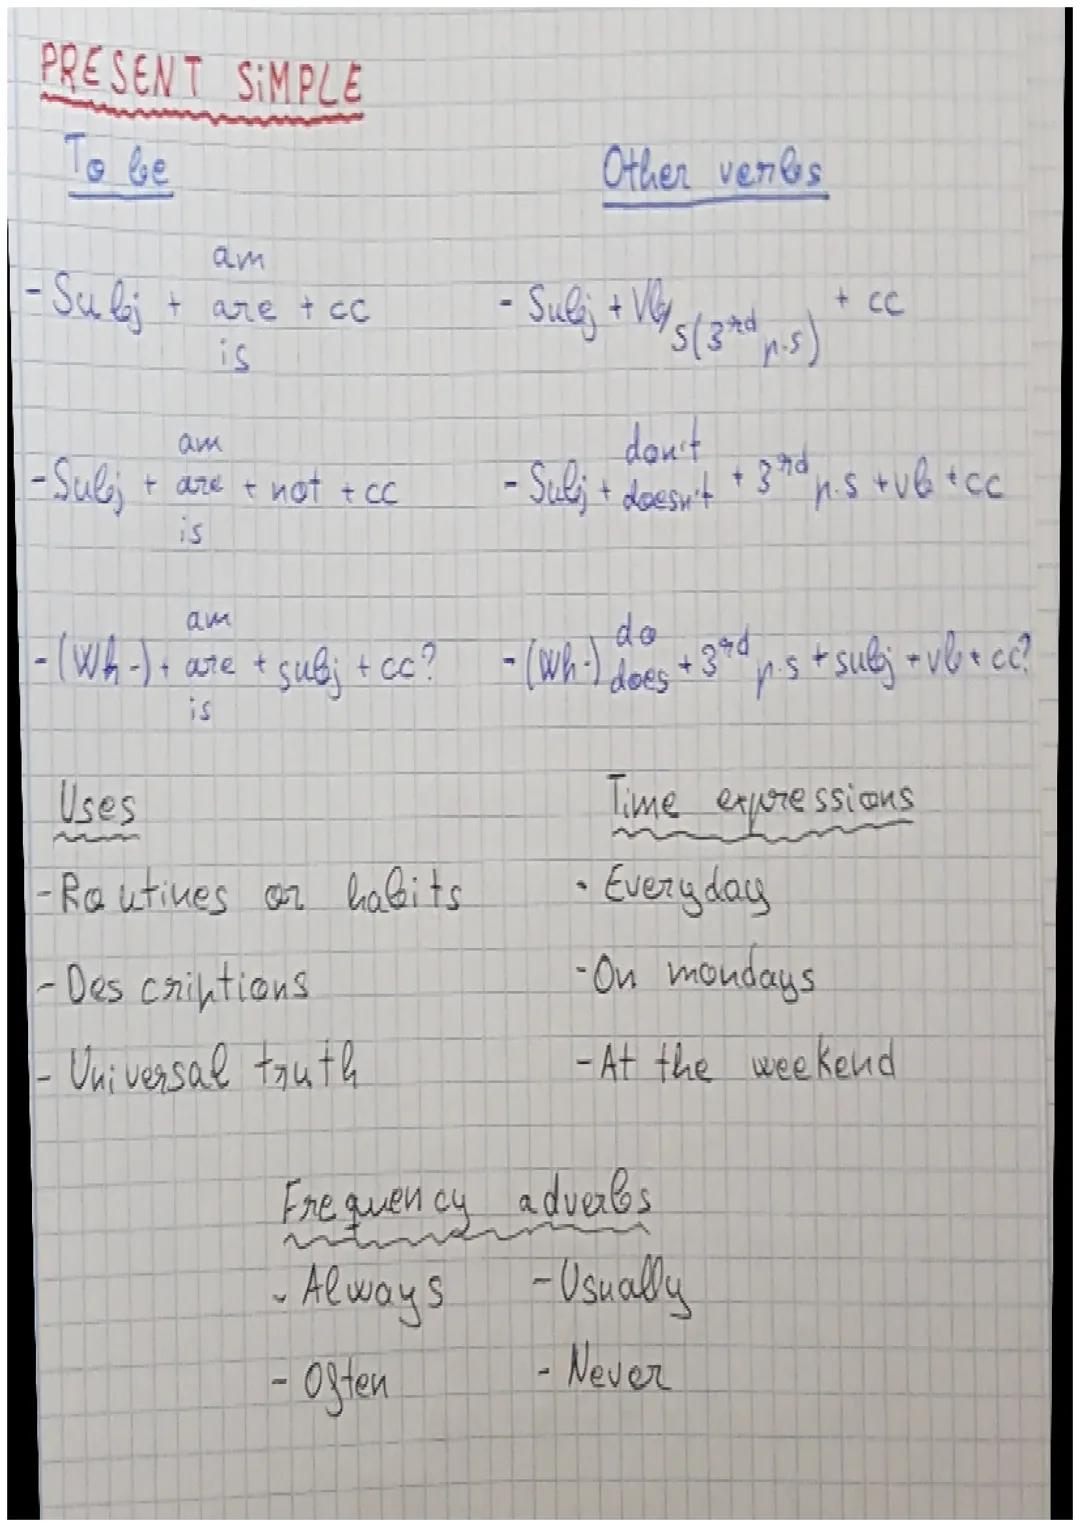 PRESENT SiMPLE
To be
Other verbs
- Subj + am / are / is + cc
- Subj + Vb/s(3rd p.s) + cc
- Subj + am / are / is + not + cc
- Subj + don't / doesn't + 3rd p.s + vb + cc
- (Wh-) + am / are / is + subj + cc?
- (Wh-) do / does + 3rd p.s + subj + vb + cc?
Uses
- Routines or habits
- Descriptions
- Universal truth
Time expressions
- Everyday
- On mondays
- At the weekend
Frequency adverbs
- Always - Usually
- Often - Never